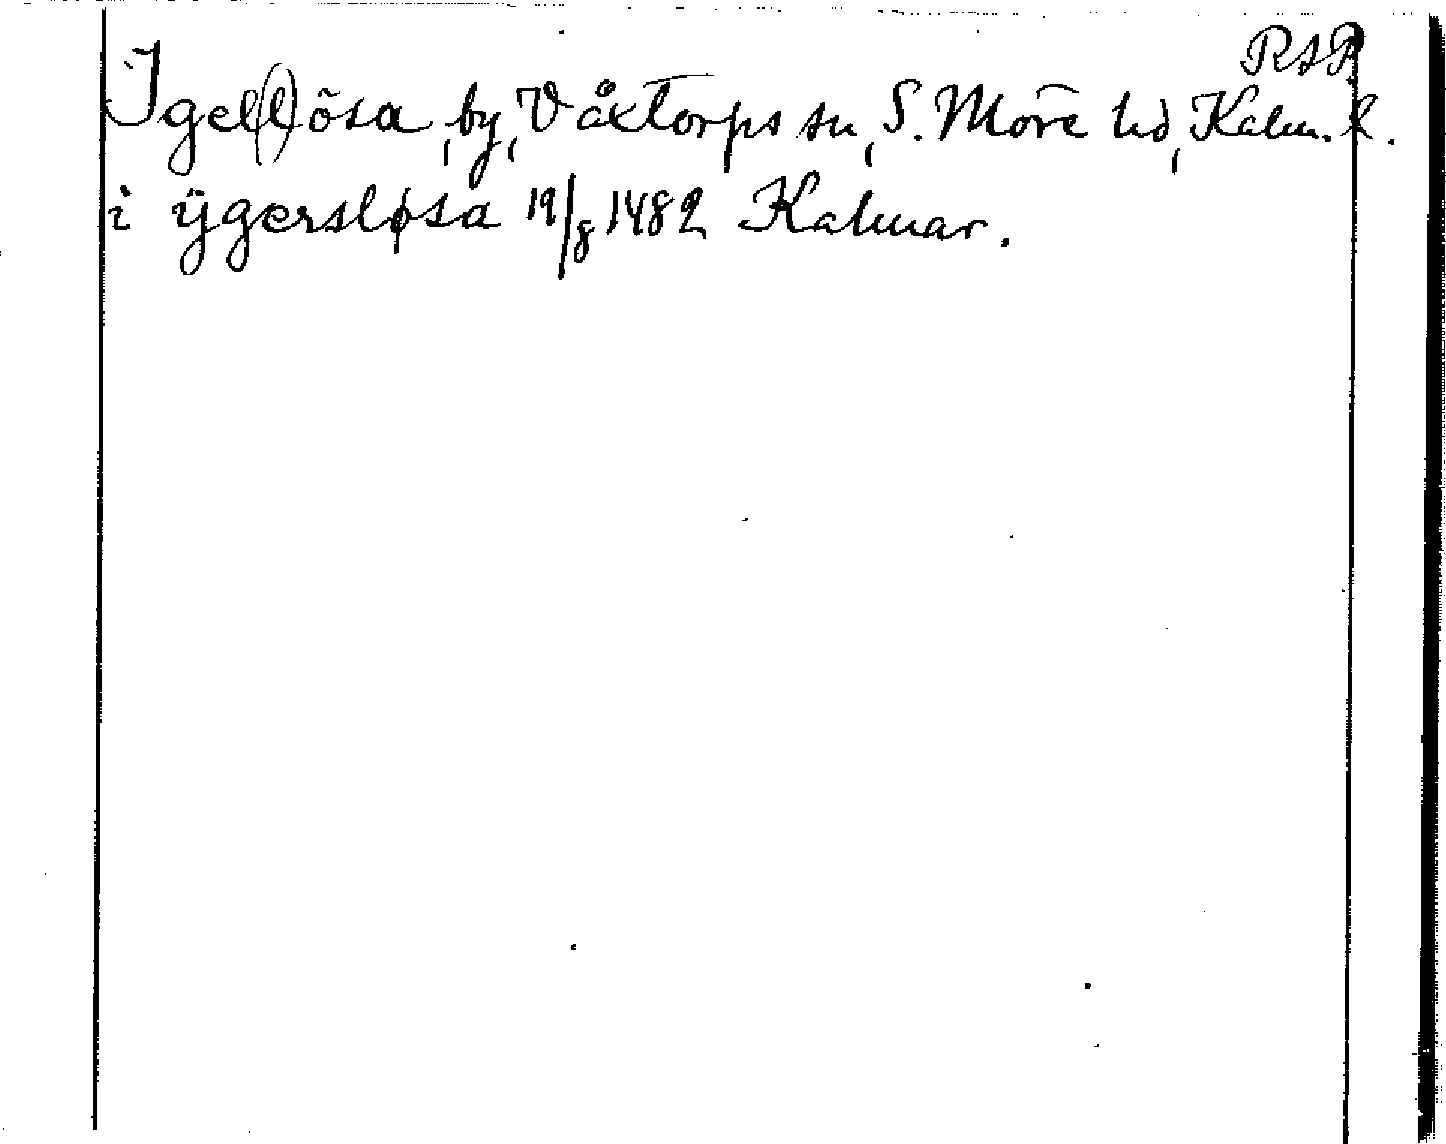 RAP
Igel(l)ösa, by, Våxtorps sn, S. Möre hd, Kalm. l.
i ÿgersløsa 19/8 1482 Kalmar.